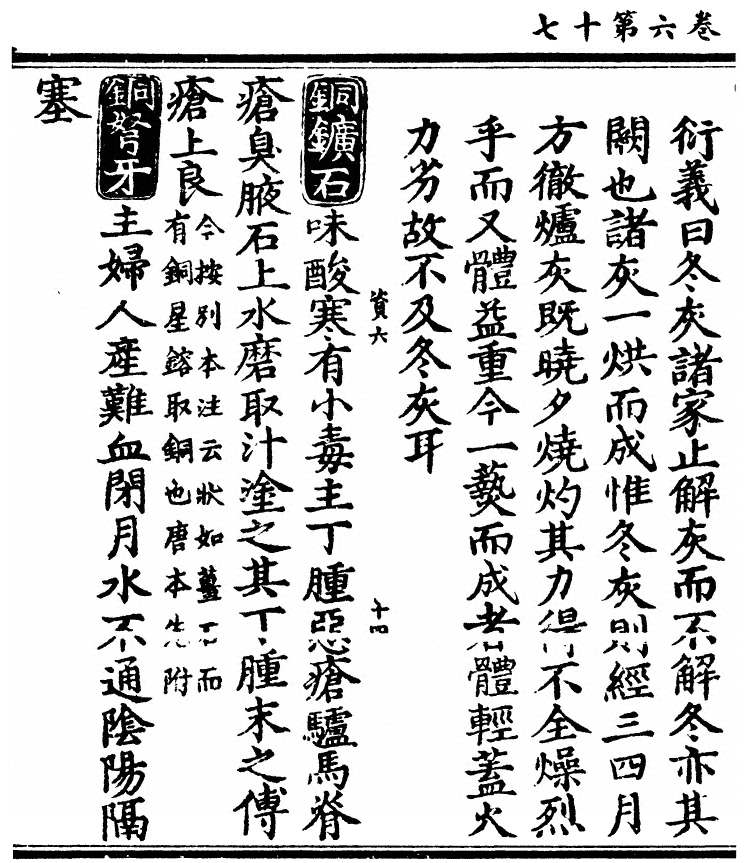 七十第六卷
衍義曰冬灰諸家止解灰而不解冬亦其
闕也諸灰一烘而成惟冬灰則經三四月
方徹爐灰既曉夕燒灼其力得不全燥烈
乎而又體益重今一爇而成者體輕蓋火
力劣故不及冬灰耳
資六
十四
銅鑛石味酸寒有小毒主丁腫惡瘡驢馬脊
瘡臭腋石上水磨取汁塗之其丁腫末之傅
瘡上良
今按別本注云狀如薑石而
有銅星鎔取銅也唐本先附
銅弩牙主婦人產難血閉月水不通陰陽隔
塞